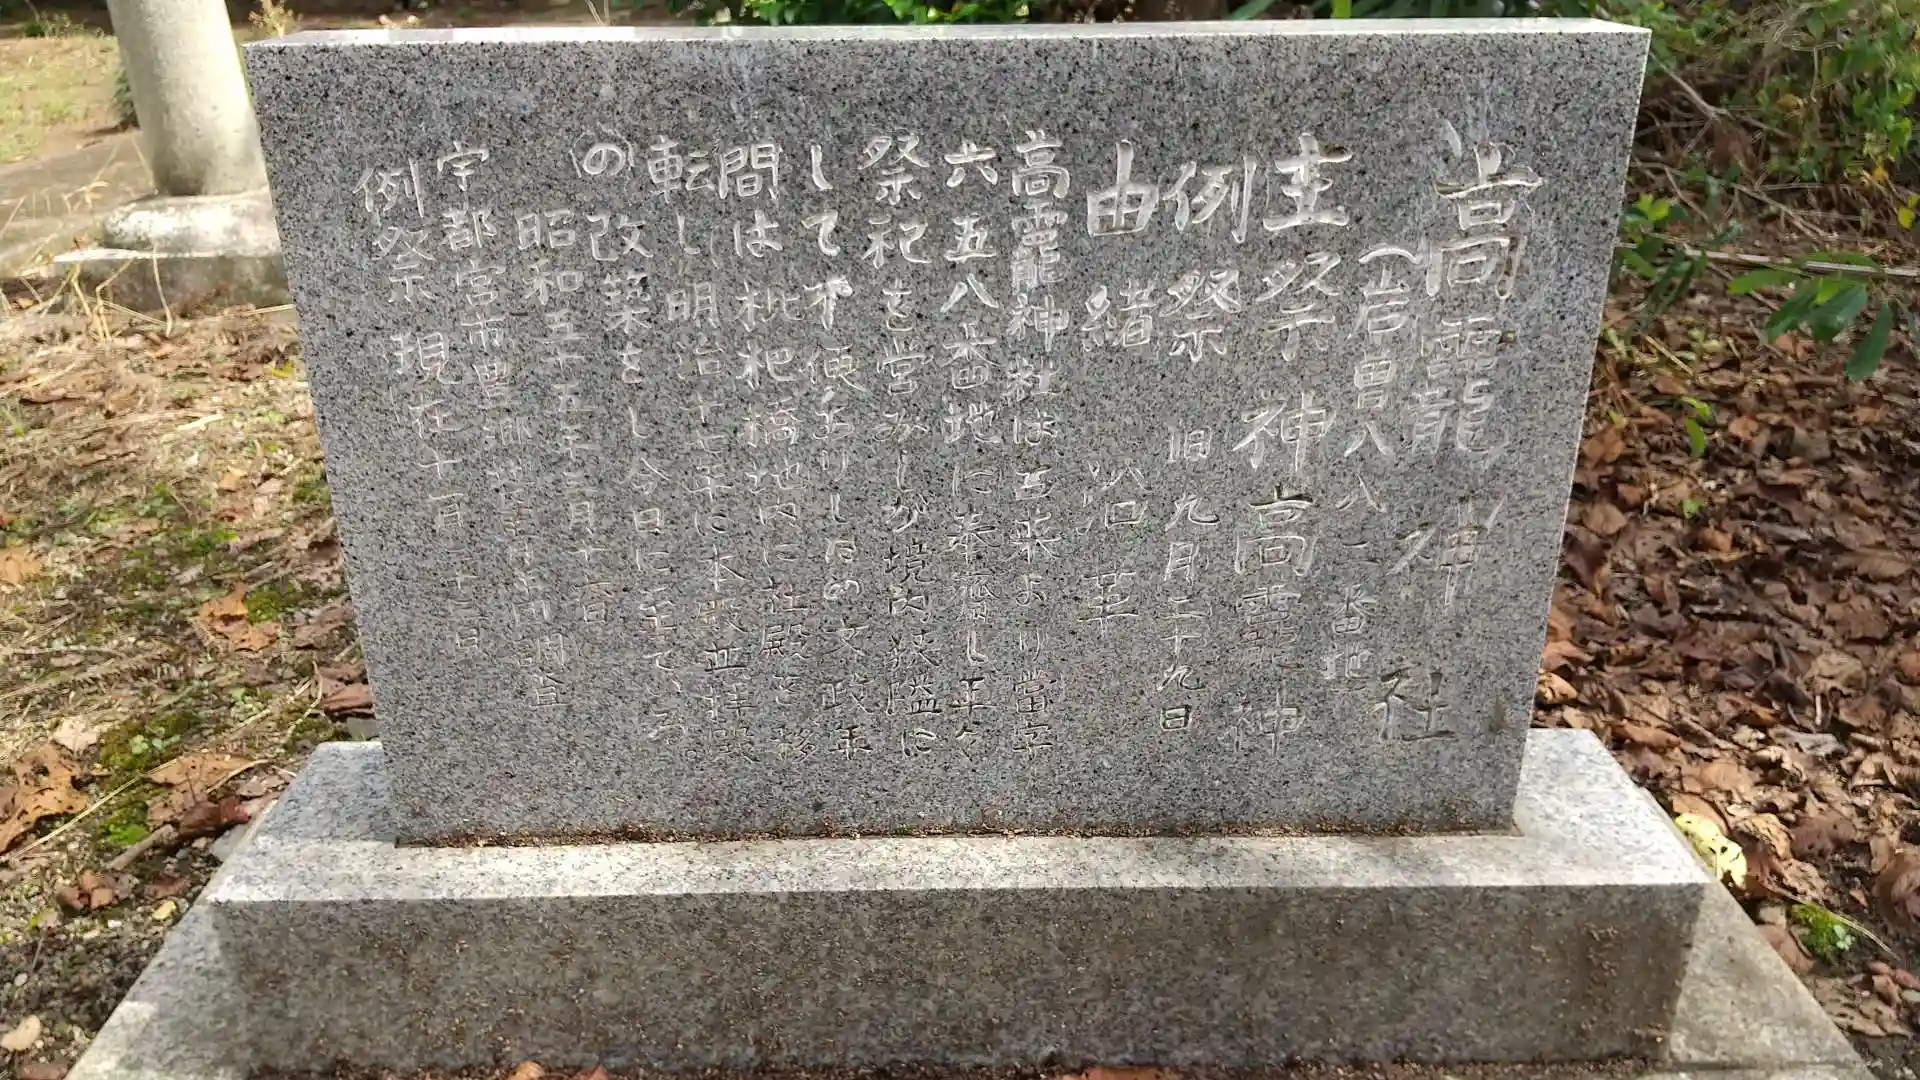 高龗神社
(岩曽八八一番地
主祭神 高龗神
例祭 旧九月二十九日
由緒 沿革
高龗神社は古来より當字
六五八番地に奉齋し年々
祭祀を営みしが境内狭隘に
して不便ありしため文政年
間は枇杷橋地内に社殿を移
転し明治十七年に本殿並拝殿
の改築をし今日に至ている
昭和五十五年三月十二日
宇都宮市豊郷
例祭 現在十一月二十三日